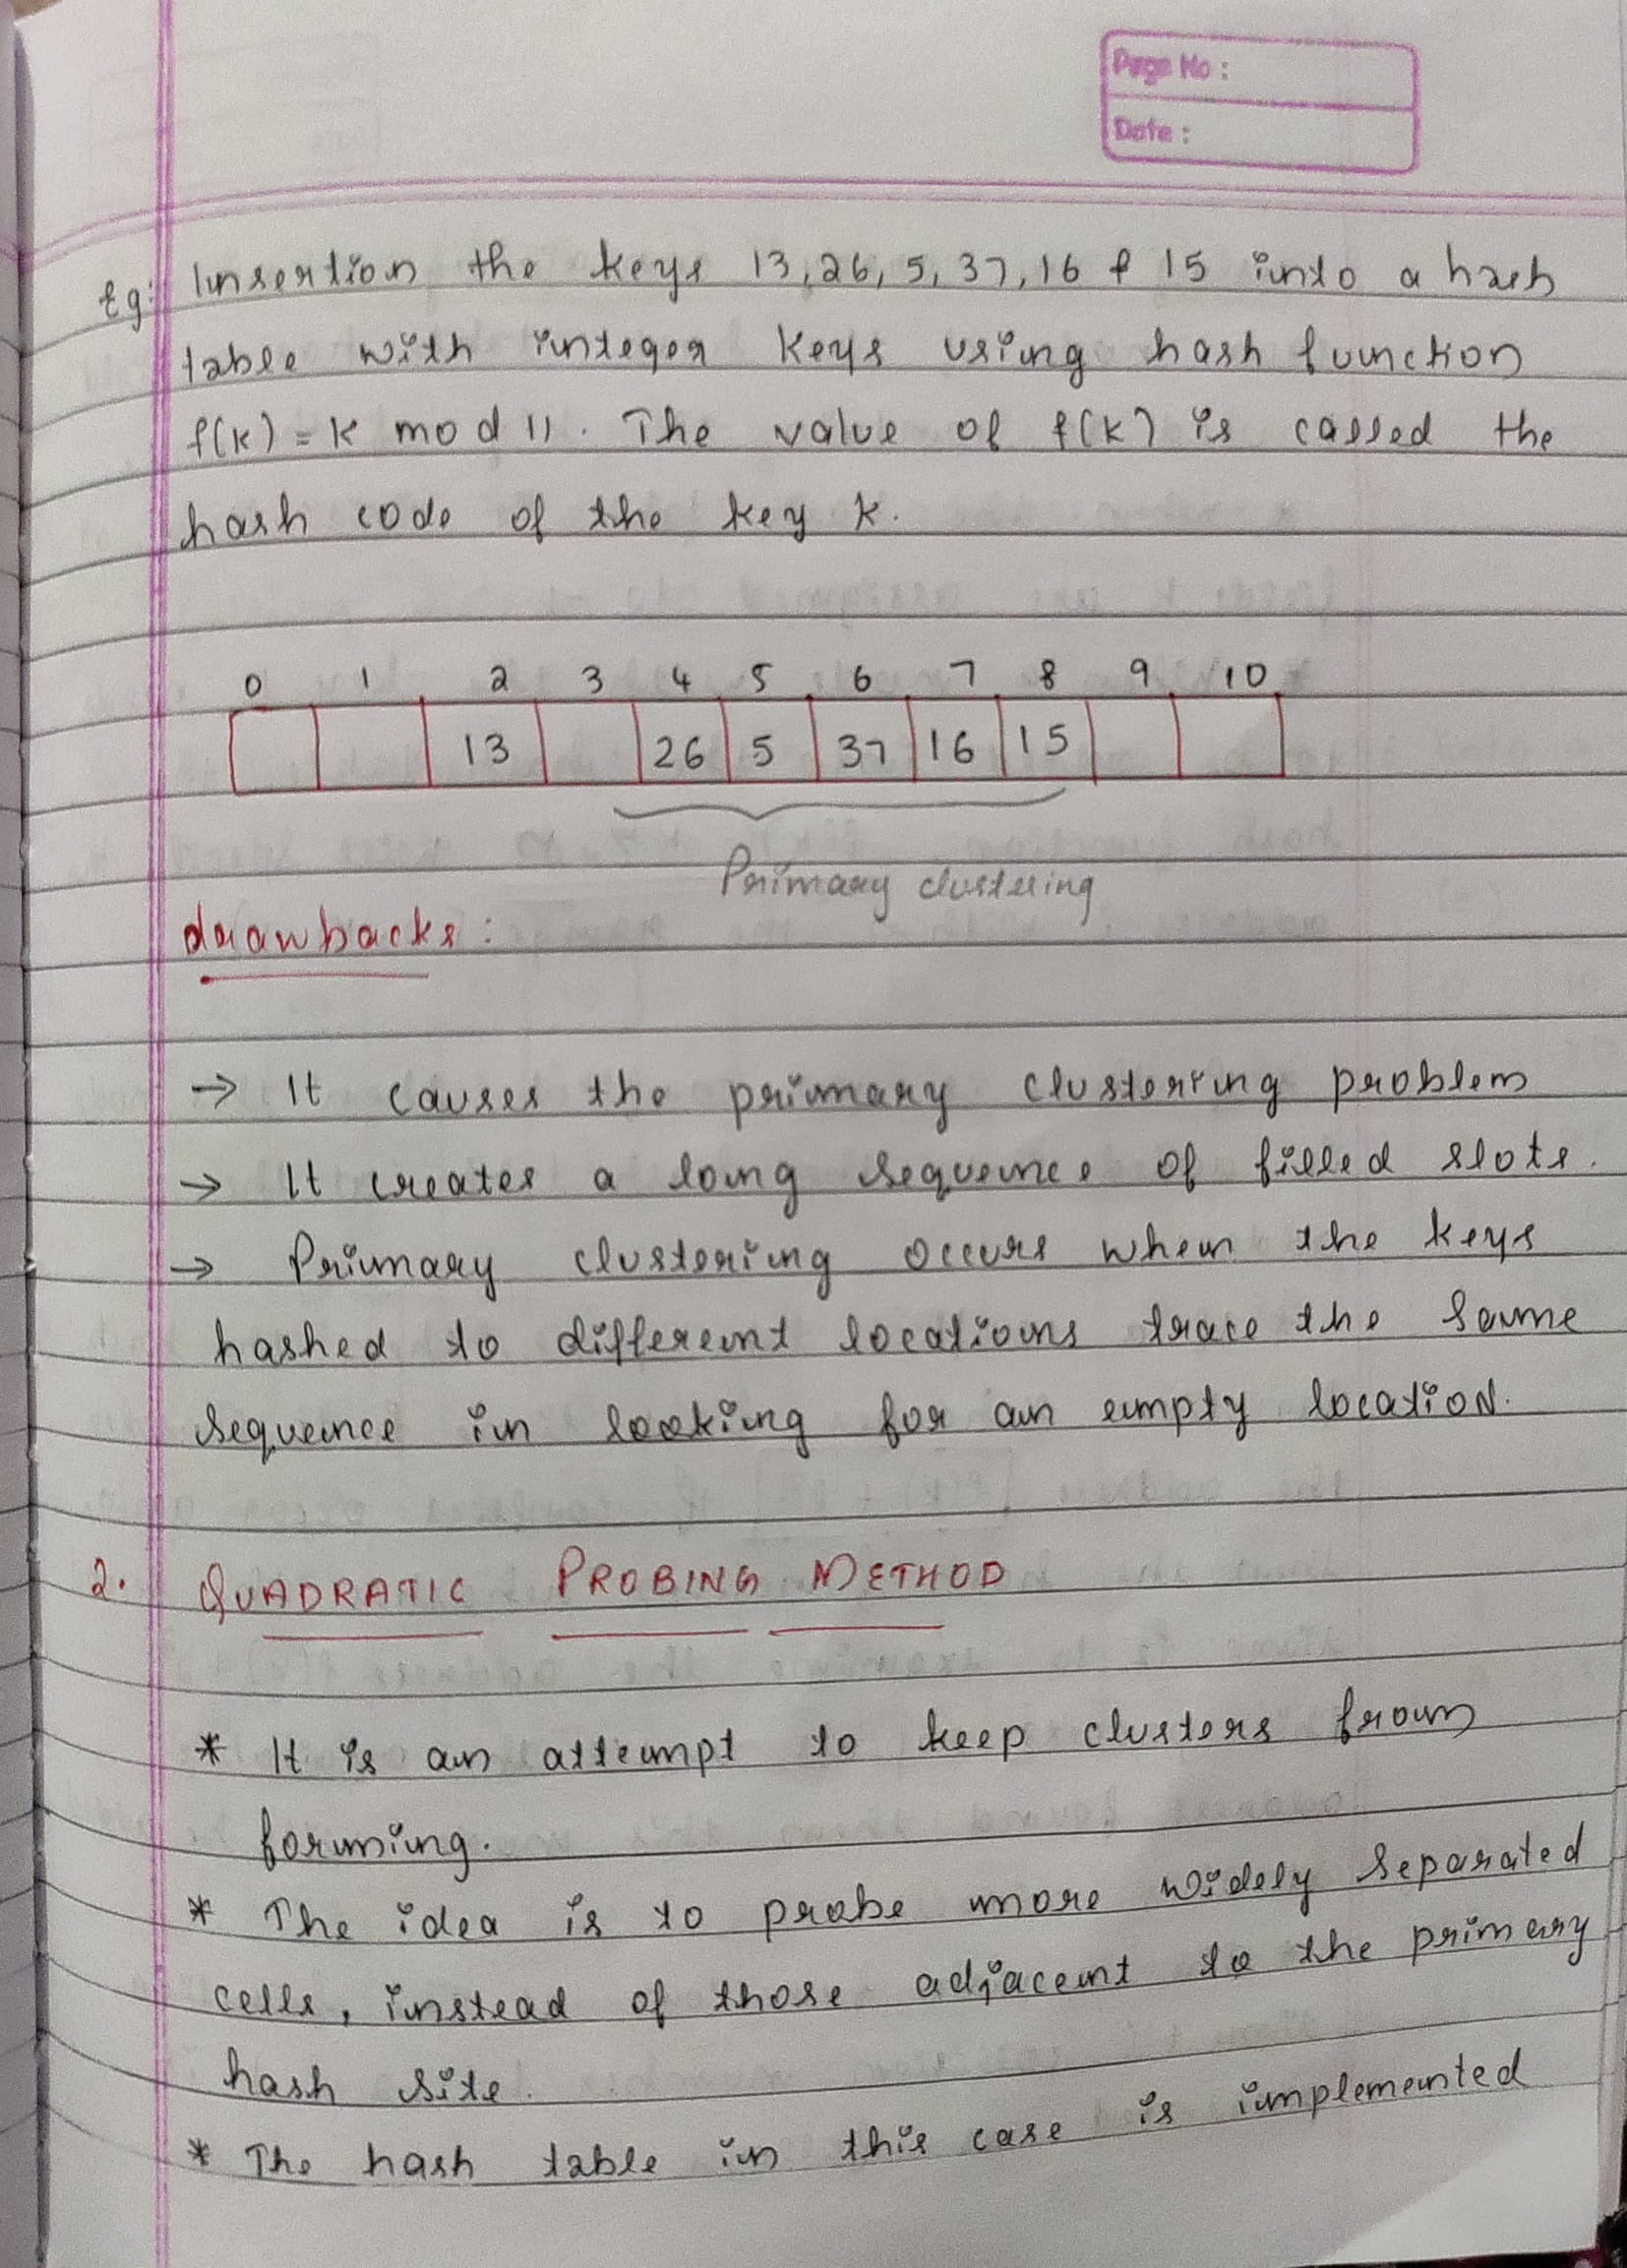 Page No :
Date :
Eg: Insertion the keys 13, 26, 5, 37, 16 & 15 into a hash
table with integer keys using hash function
f(k) = k mod 11. The value of f(k) is called the
hash code of the key k.
0 1 2 3 4 5 6 7 8 9 10
13 26 5 37 16 15
Primary clustering
drawbacks :
→ It causes the primary clustering problem
→ It creates a long sequence of filled slots.
→ Primary clustering occurs when the keys
hashed to different locations trace the same
sequence in looking for an empty location.
2. QUADRATIC PROBING METHOD
* It is an attempt to keep clusters from
forming.
* The idea is to probe more widely separated
cells, instead of those adjacent to the primary
hash site.
* The hash table in this case is implemented